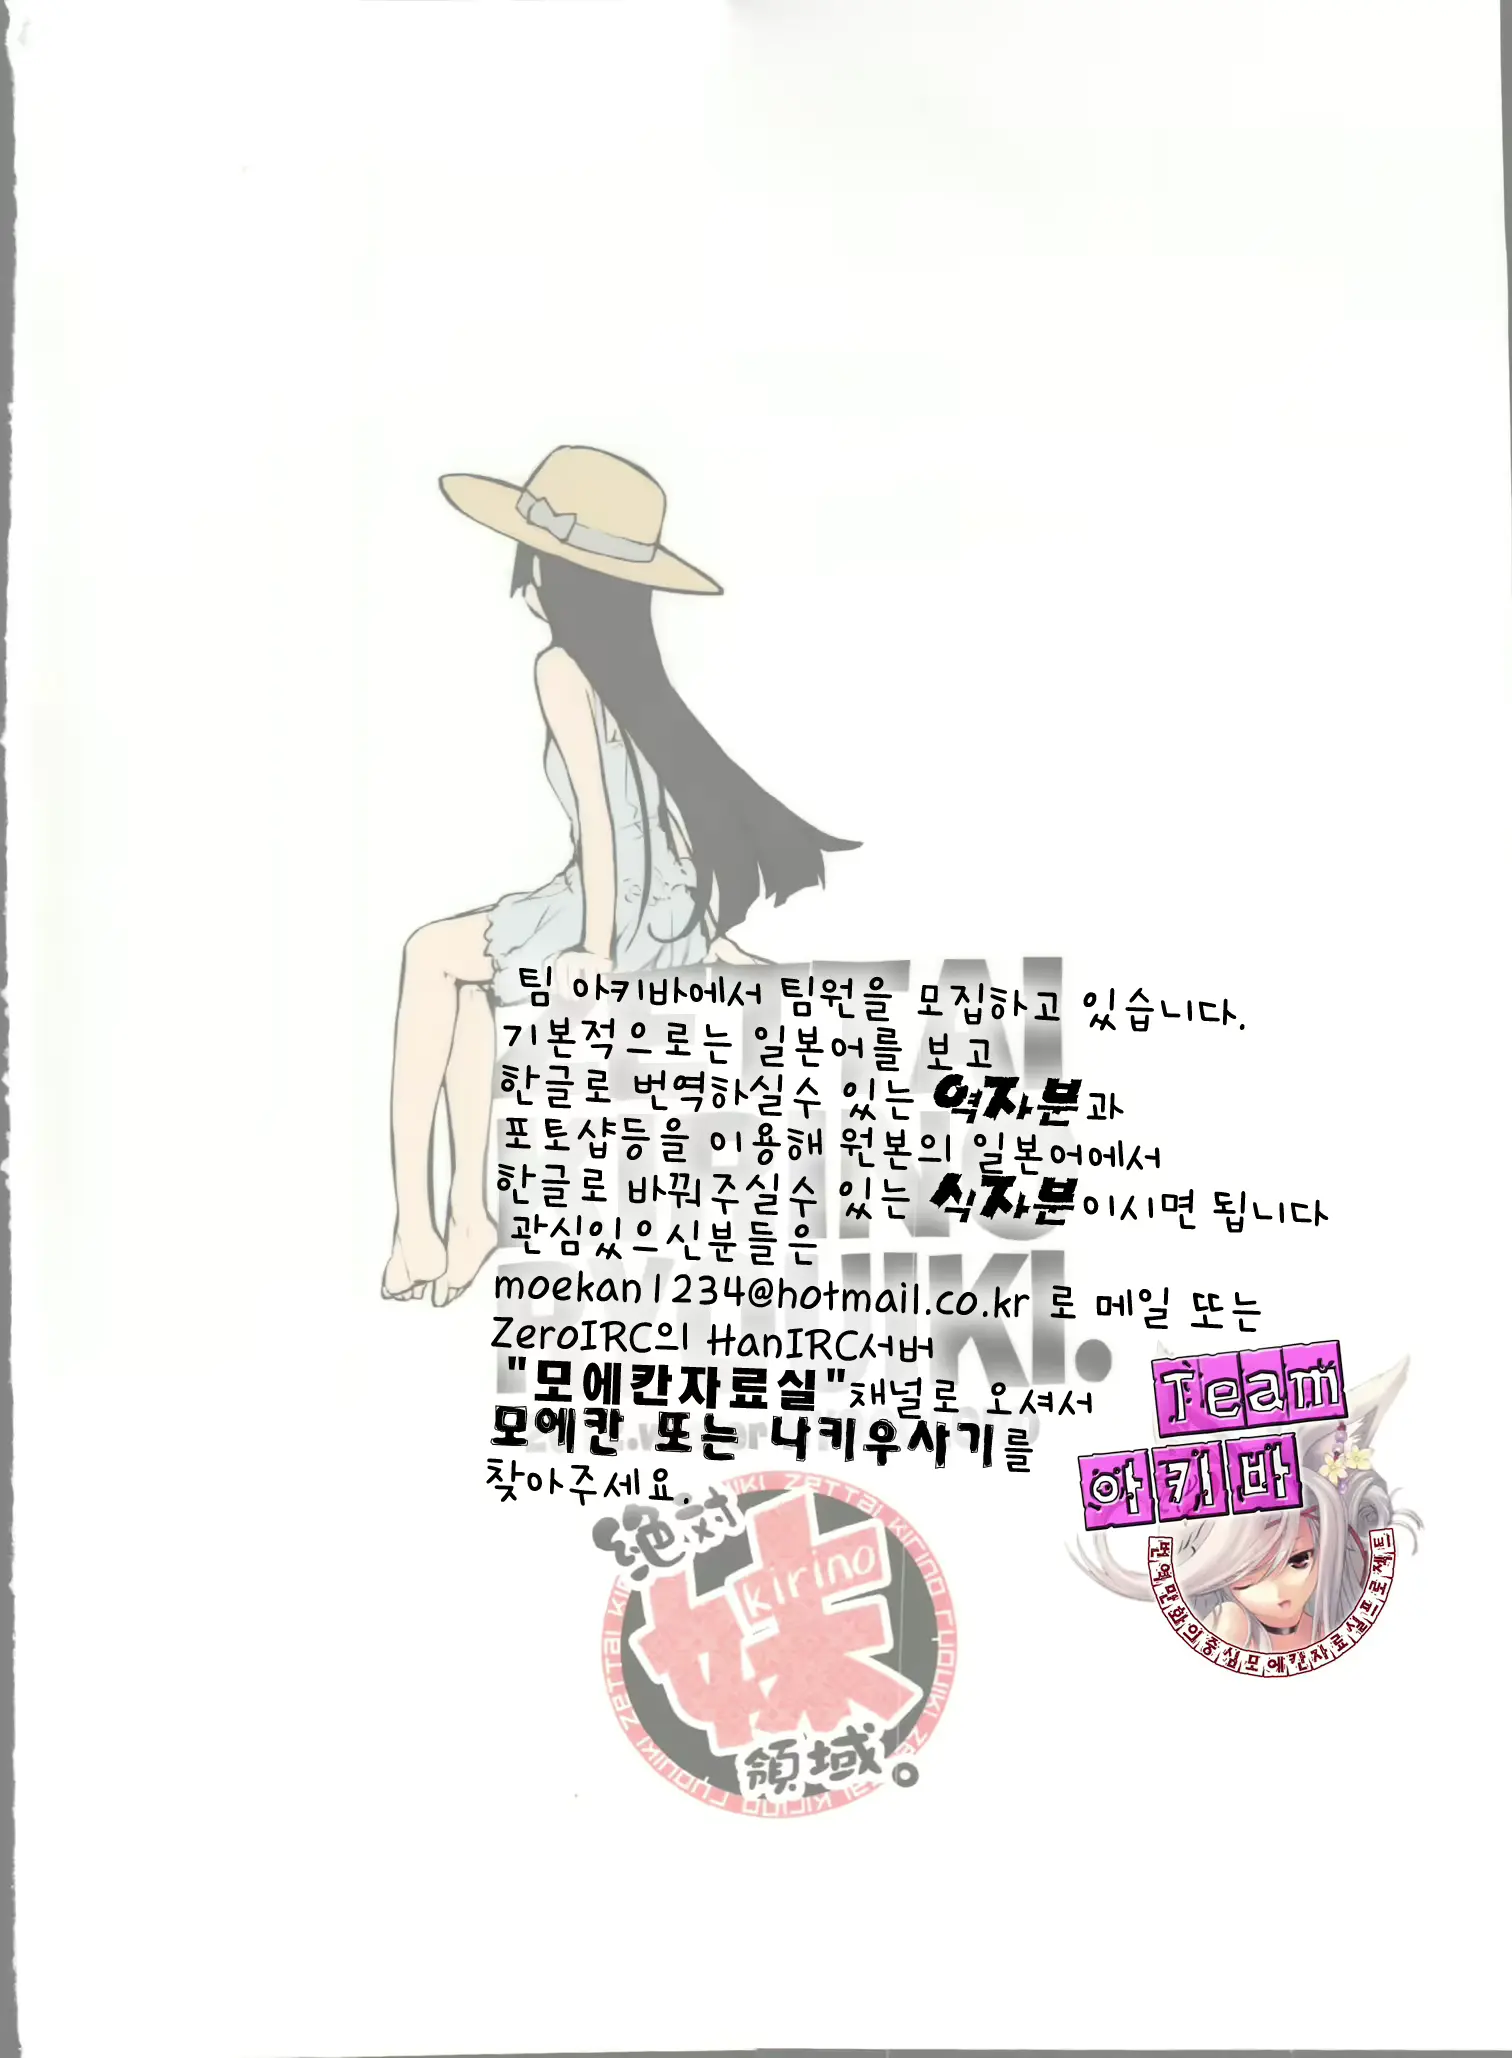 팀 아키바에서 팀원을 모집하고 있습니다.
기본적으로는 일본어를 보고
한글로 번역하실수 있는 역자분과
포토샵등을 이용해 원본의 일본어에서
한글로 바꿔주실수 있는 식자분이시면 됩니다
관심있으신분들은
moekan1234@hotmail.co.kr 로 메일 또는
ZeroIRC의 HanIRC서버
"모에칸자료실"채널로 오셔서
모에칸 또는 나키우사기를
찾아주세요.
ZETTAI
KIRINO
RYOUIKI.
Team
아키바
번역만화의중심모에칸자료실프로젝트
絶対
妹
kirino
領域。
ZETTAI KIRINO RYOUIKI